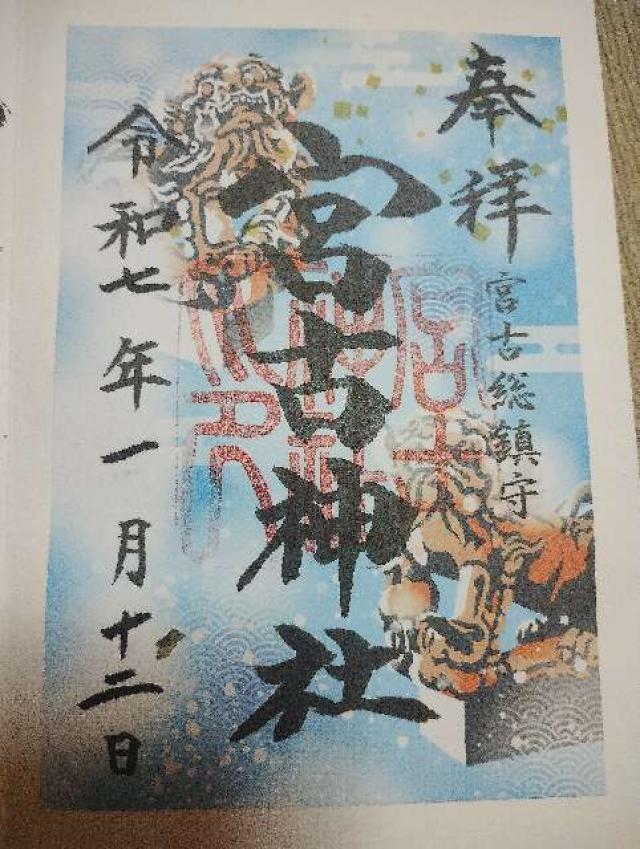 奉拝
宮古総鎮守
宮古神社
令和七年一月十二日